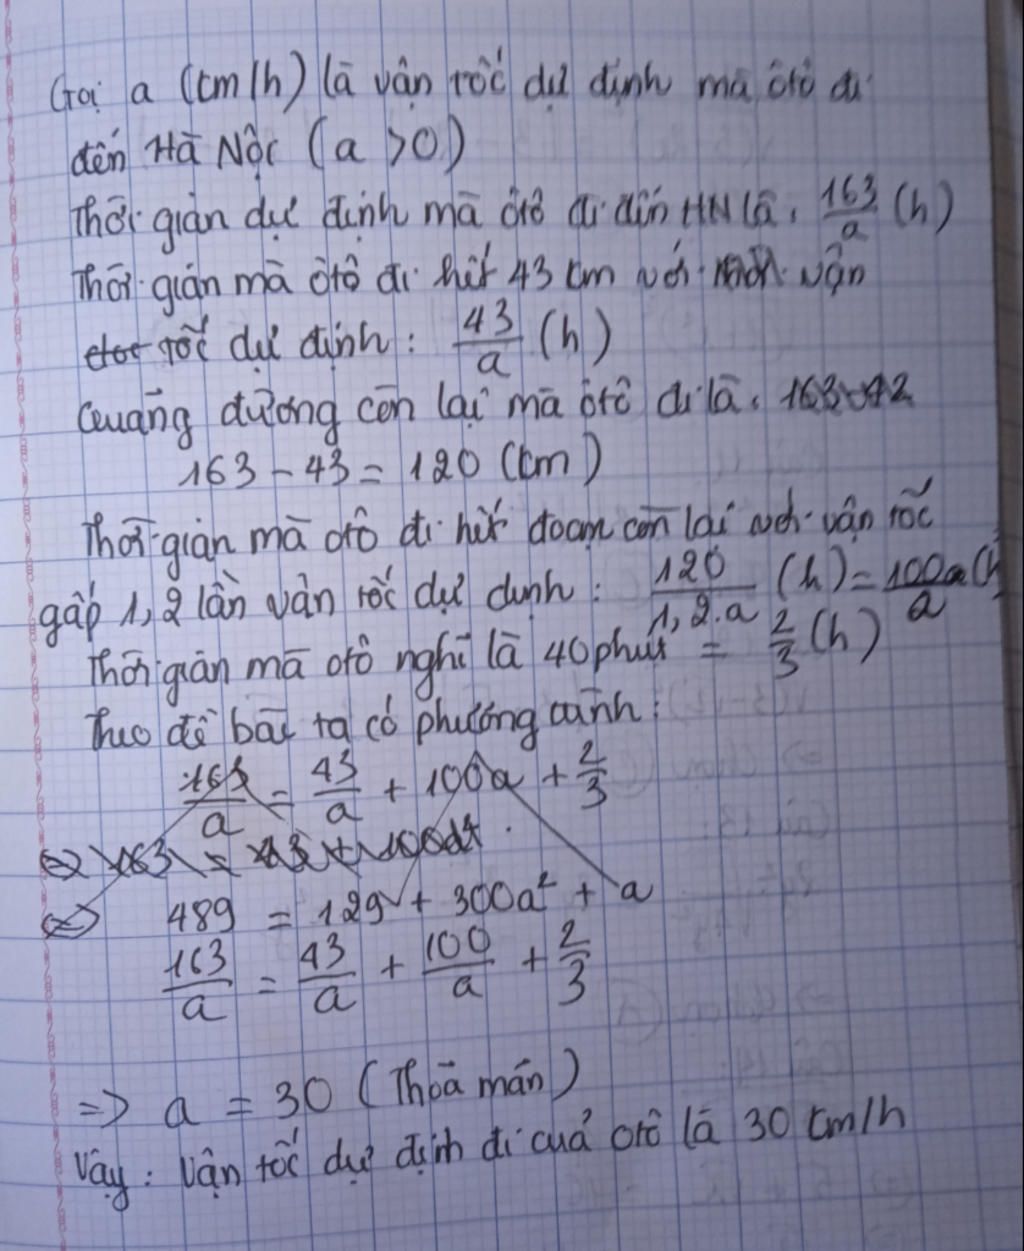 Gọi a (km/h) là vận tốc dự định mà ôtô đi
đến Hà Nội (a >0)
Thời gian dự định mà ôtô đi đến HN là: 163/a (h)
Thời gian mà ôtô đi hết 43 km với vận
tốc dự định: 43/a (h)
Quãng đường còn lại mà ôtô đi là: 163-42
163 - 43 = 120 (km)
Thời gian mà ôtô đi hết đoạn còn lại với vận tốc
gấp 1,2 lần vận tốc dự định: 120/1,2.a (h) = 100/a (h
Thời gian mà ôtô nghỉ là 40 phút = 2/3 (h)
Theo đề bài ta có phương trình:
163/a = 43/a + 100a + 2/3
⇔ 163 = 43 +
⇔ 489 = 129 + 300a² + a
163/a = 43/a + 100/a + 2/3
=> a = 30 (Thoả mãn)
Vậy: Vận tốc dự định đi của ôtô là 30 km/h